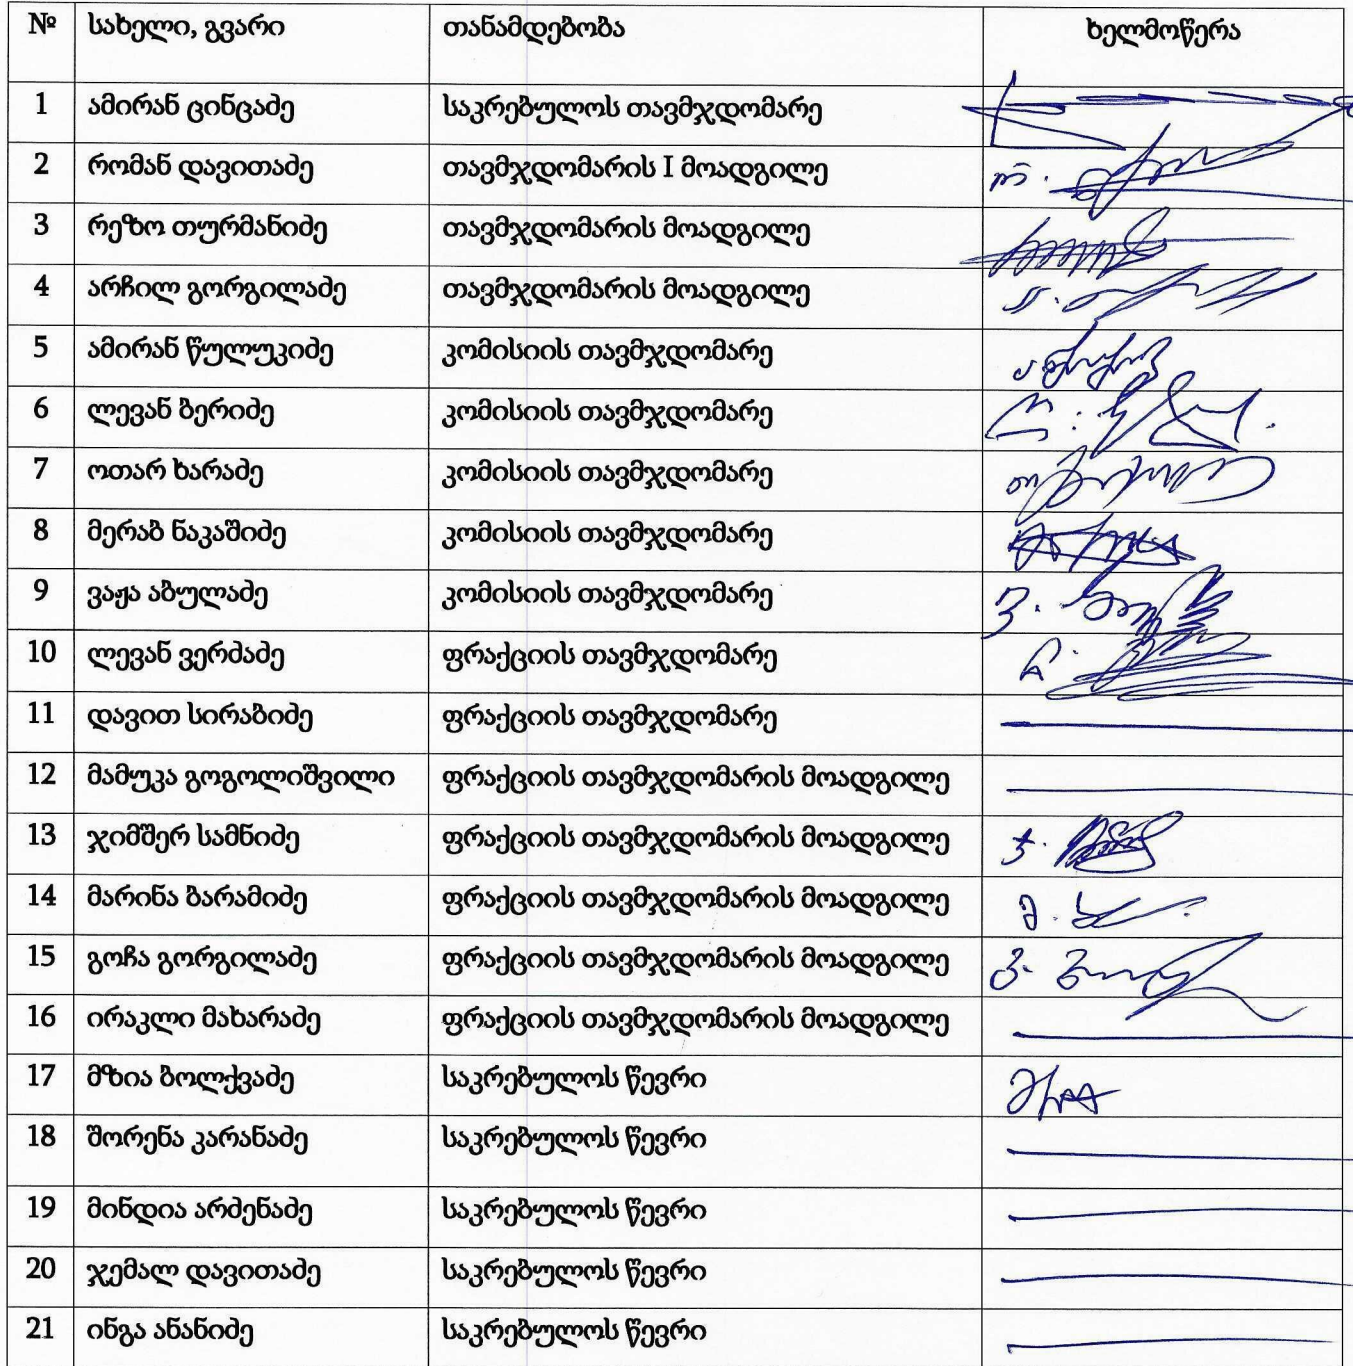 № სახელი, გვარი თანამდებობა ხელმოწერა
1 ამირან ცინცაძე საკრებულოს თავმჯდომარე
2 რომან დავითაძე თავმჯდომარის I მოადგილე
3 რეზო თურმანიძე თავმჯდომარის მოადგილე
4 არჩილ გორგილაძე თავმჯდომარის მოადგილე
5 ამირან წულუკიძე კომისიის თავმჯდომარე
6 ლევან ბერიძე კომისიის თავმჯდომარე
7 ოთარ ხარაძე კომისიის თავმჯდომარე
8 მერაბ ნაკაშიძე კომისიის თავმჯდომარე
9 ვაჟა აბულაძე კომისიის თავმჯდომარე
10 ლევან ვერძაძე ფრაქციის თავმჯდომარე
11 დავით სირაბიძე ფრაქციის თავმჯდომარე
12 მამუკა გოგოლიშვილი ფრაქციის თავმჯდომარის მოადგილე
13 ჯიმშერ სამნიძე ფრაქციის თავმჯდომარის მოადგილე
14 მარინა ბარამიძე ფრაქციის თავმჯდომარის მოადგილე
15 გოჩა გორგილაძე ფრაქციის თავმჯდომარის მოადგილე
16 ირაკლი მახარაძე ფრაქციის თავმჯდომარის მოადგილე
17 მზია ბოლქვაძე საკრებულოს წევრი
18 შორენა კარანაძე საკრებულოს წევრი
19 მინდია არძენაძე საკრებულოს წევრი
20 ჯემალ დავითაძე საკრებულოს წევრი
21 ინგა ანანიძე საკრებულოს წევრი